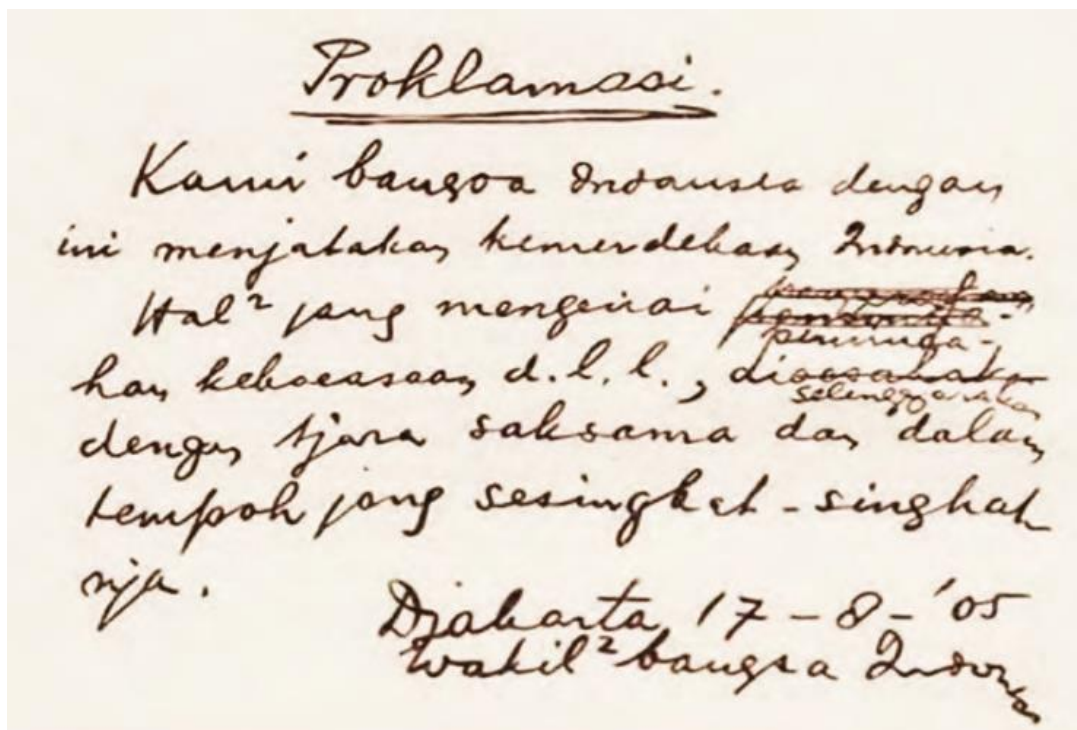 Proklamasi.
Kami bangsa Indonesia dengan
ini menjatakan kemerdekaan Indonesia.
Hal² jang mengenai
peminda-
han kekoeasaan d.l.l., dioesahakan
selenggarakan
dengan tjara saksama dan dalam
tempoh jang sesingkat-singkat
nja.
Djakarta 17 - 8 - '05
Wakil² bangsa Indonesia